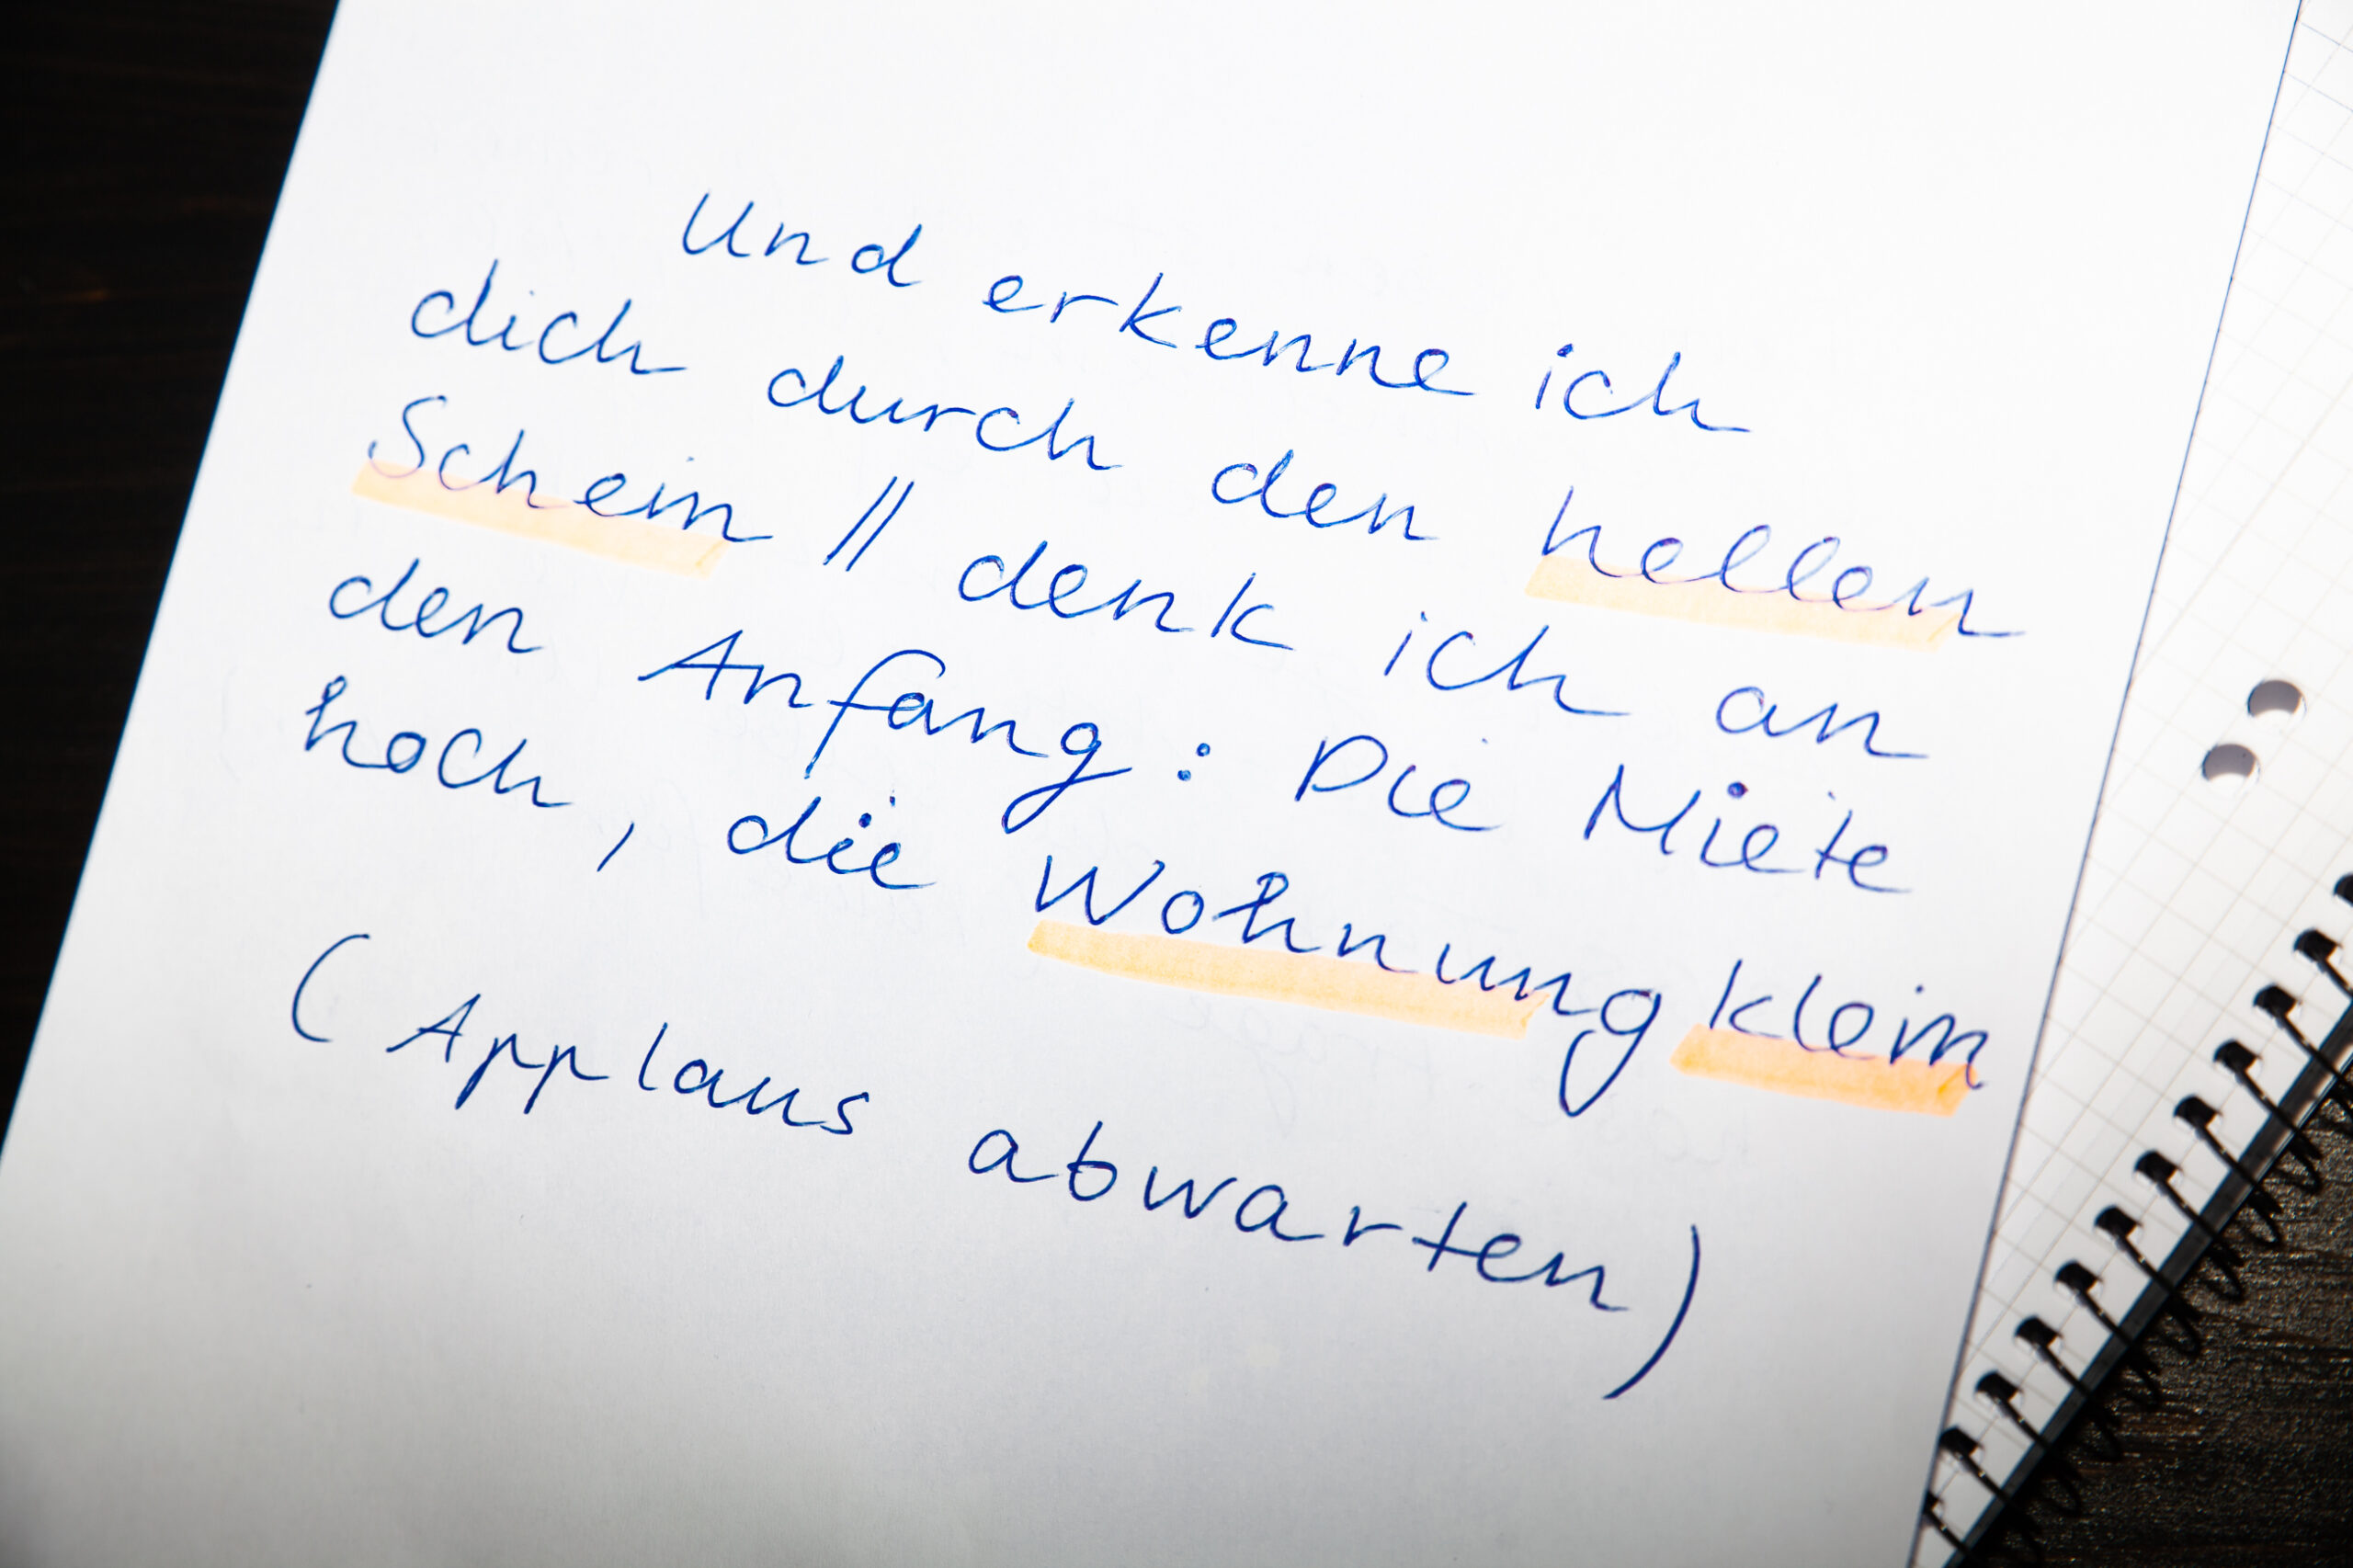 Und erkenne ich
dich durch den hellen
Schein // denk ich an
den Anfang: Die Miete
hoch, die Wohnung klein
(Applaus abwarten)